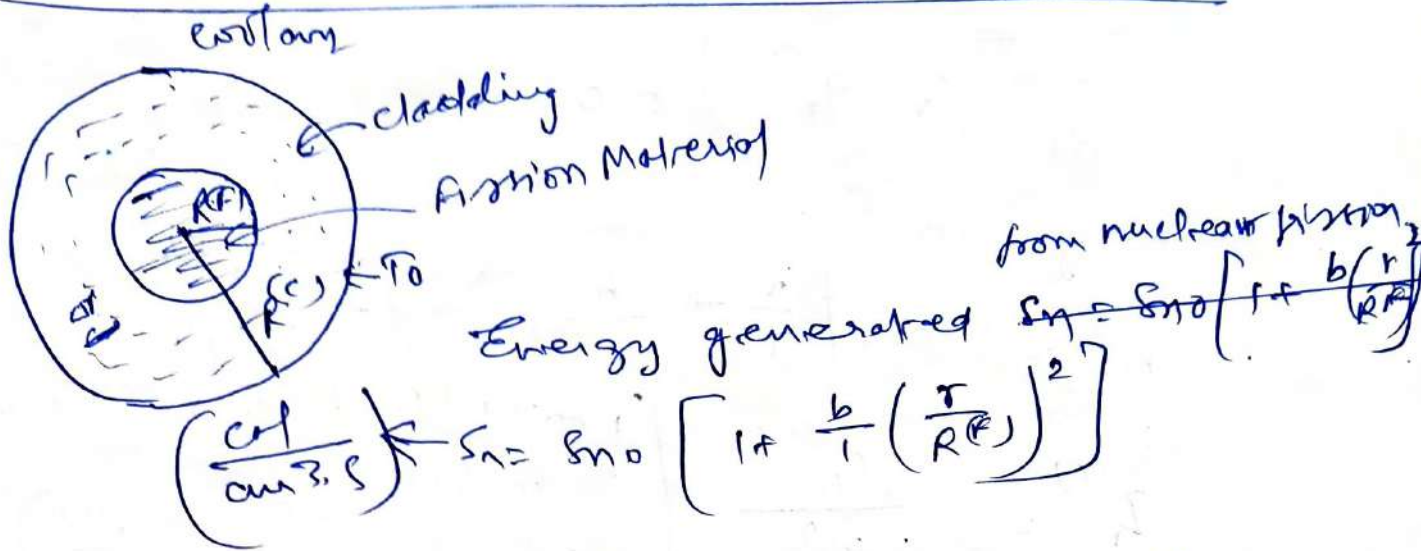 coolant
cladding
Fission Material
R(F)
R(C)
To
from nuclear fission
Energy generated Sn = Sno [1 + b(r/R(F))²]
(cal/cm3.s) ← Sn = Sno [1 + b/1 (r/R(F))²]